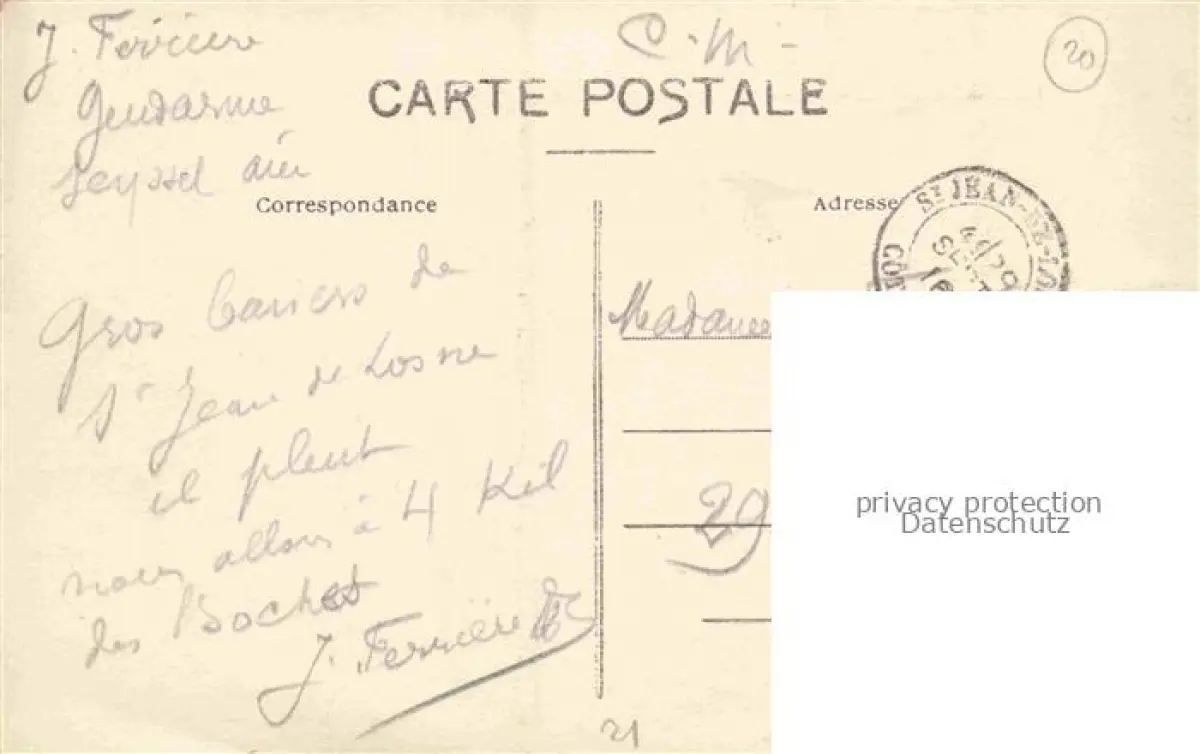 J. Ferrière
Gendarme
Seyssel Ain
C. M -
20
CARTE POSTALE
Correspondance
Adresse
ST JEAN-DE-LOS
CÔT
Gros baisers de
St Jean de Losne
il pleut
nous allons à 4 Kil
des Boches
J. Ferrière
Madame
29
21
privacy protection
Datenschutz